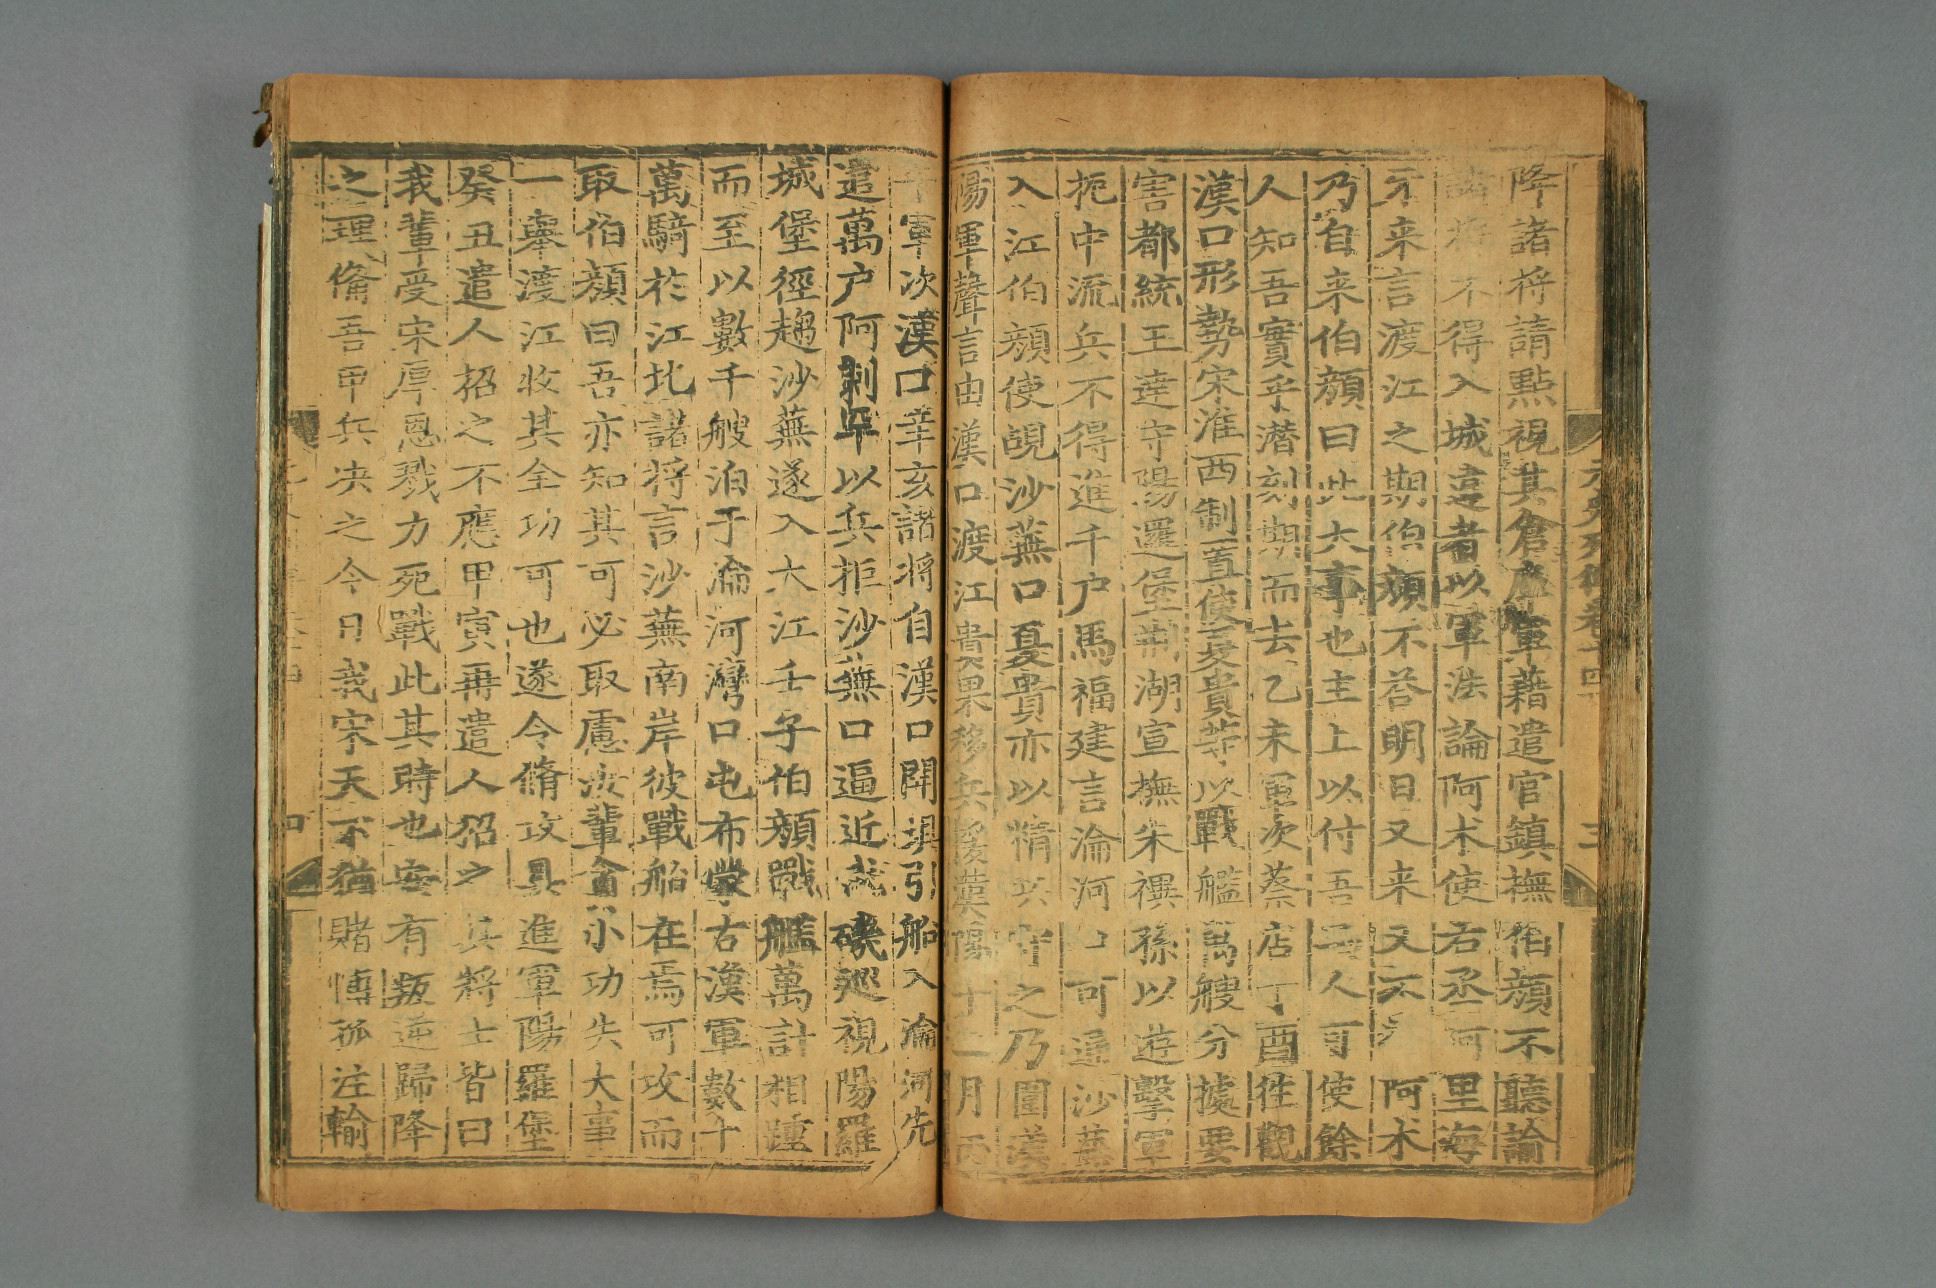 降諸将請㸃視其倉庫軍藉遣官鎮撫伯顔不聽諭
諸将不得入城違者以軍法論阿术使右丞阿里海
牙来言渡江之期伯顔不荅明日又来又不荅阿术
乃自来伯顔曰此大事也主上以付吾二人可使餘
人知吾實乎潜刻期而去乙未軍次蔡店丁酉徃觀
漢口形勢宋淮西制置使夏貴等以戰艦萬艘分據要
害都統王逹守陽邏堡荆湖宣撫朱禩孫以遊擊軍
扼中流兵不得進千户馬福建言淪河口可通沙蕪
入江伯顔使覘沙蕪口夏貴亦以精兵守之乃圍漢
陽軍聲言由漢口渡江貴果移兵援漢陽十二月丙
午軍次漢口辛亥諸将自漢口開壩引船入淪河先
遣萬户阿剌罕以兵拒沙蕪口逼近武磯廵視陽羅
城堡徑趨沙蕪遂入大江壬子伯顔戰艦萬計相踵
而至以數千艘泊于淪河灣口屯布蒙古漢軍數十
萬騎於江北諸将言沙蕪南岸彼戰船在焉可攻而
取伯顔曰吾亦知其可必取慮汝輩貪小功失大事
一舉渡江收其全功可也遂令脩攻具進軍陽羅堡
癸丑遣人招之不應甲寅再遣人招之其將士皆曰
我輩受宋厚恩戮力死戰此其時也安有叛逆歸降
之理俻吾甲兵决之今日我宋天下猶賭博孤注輸
元史列傳卷十四
三
四